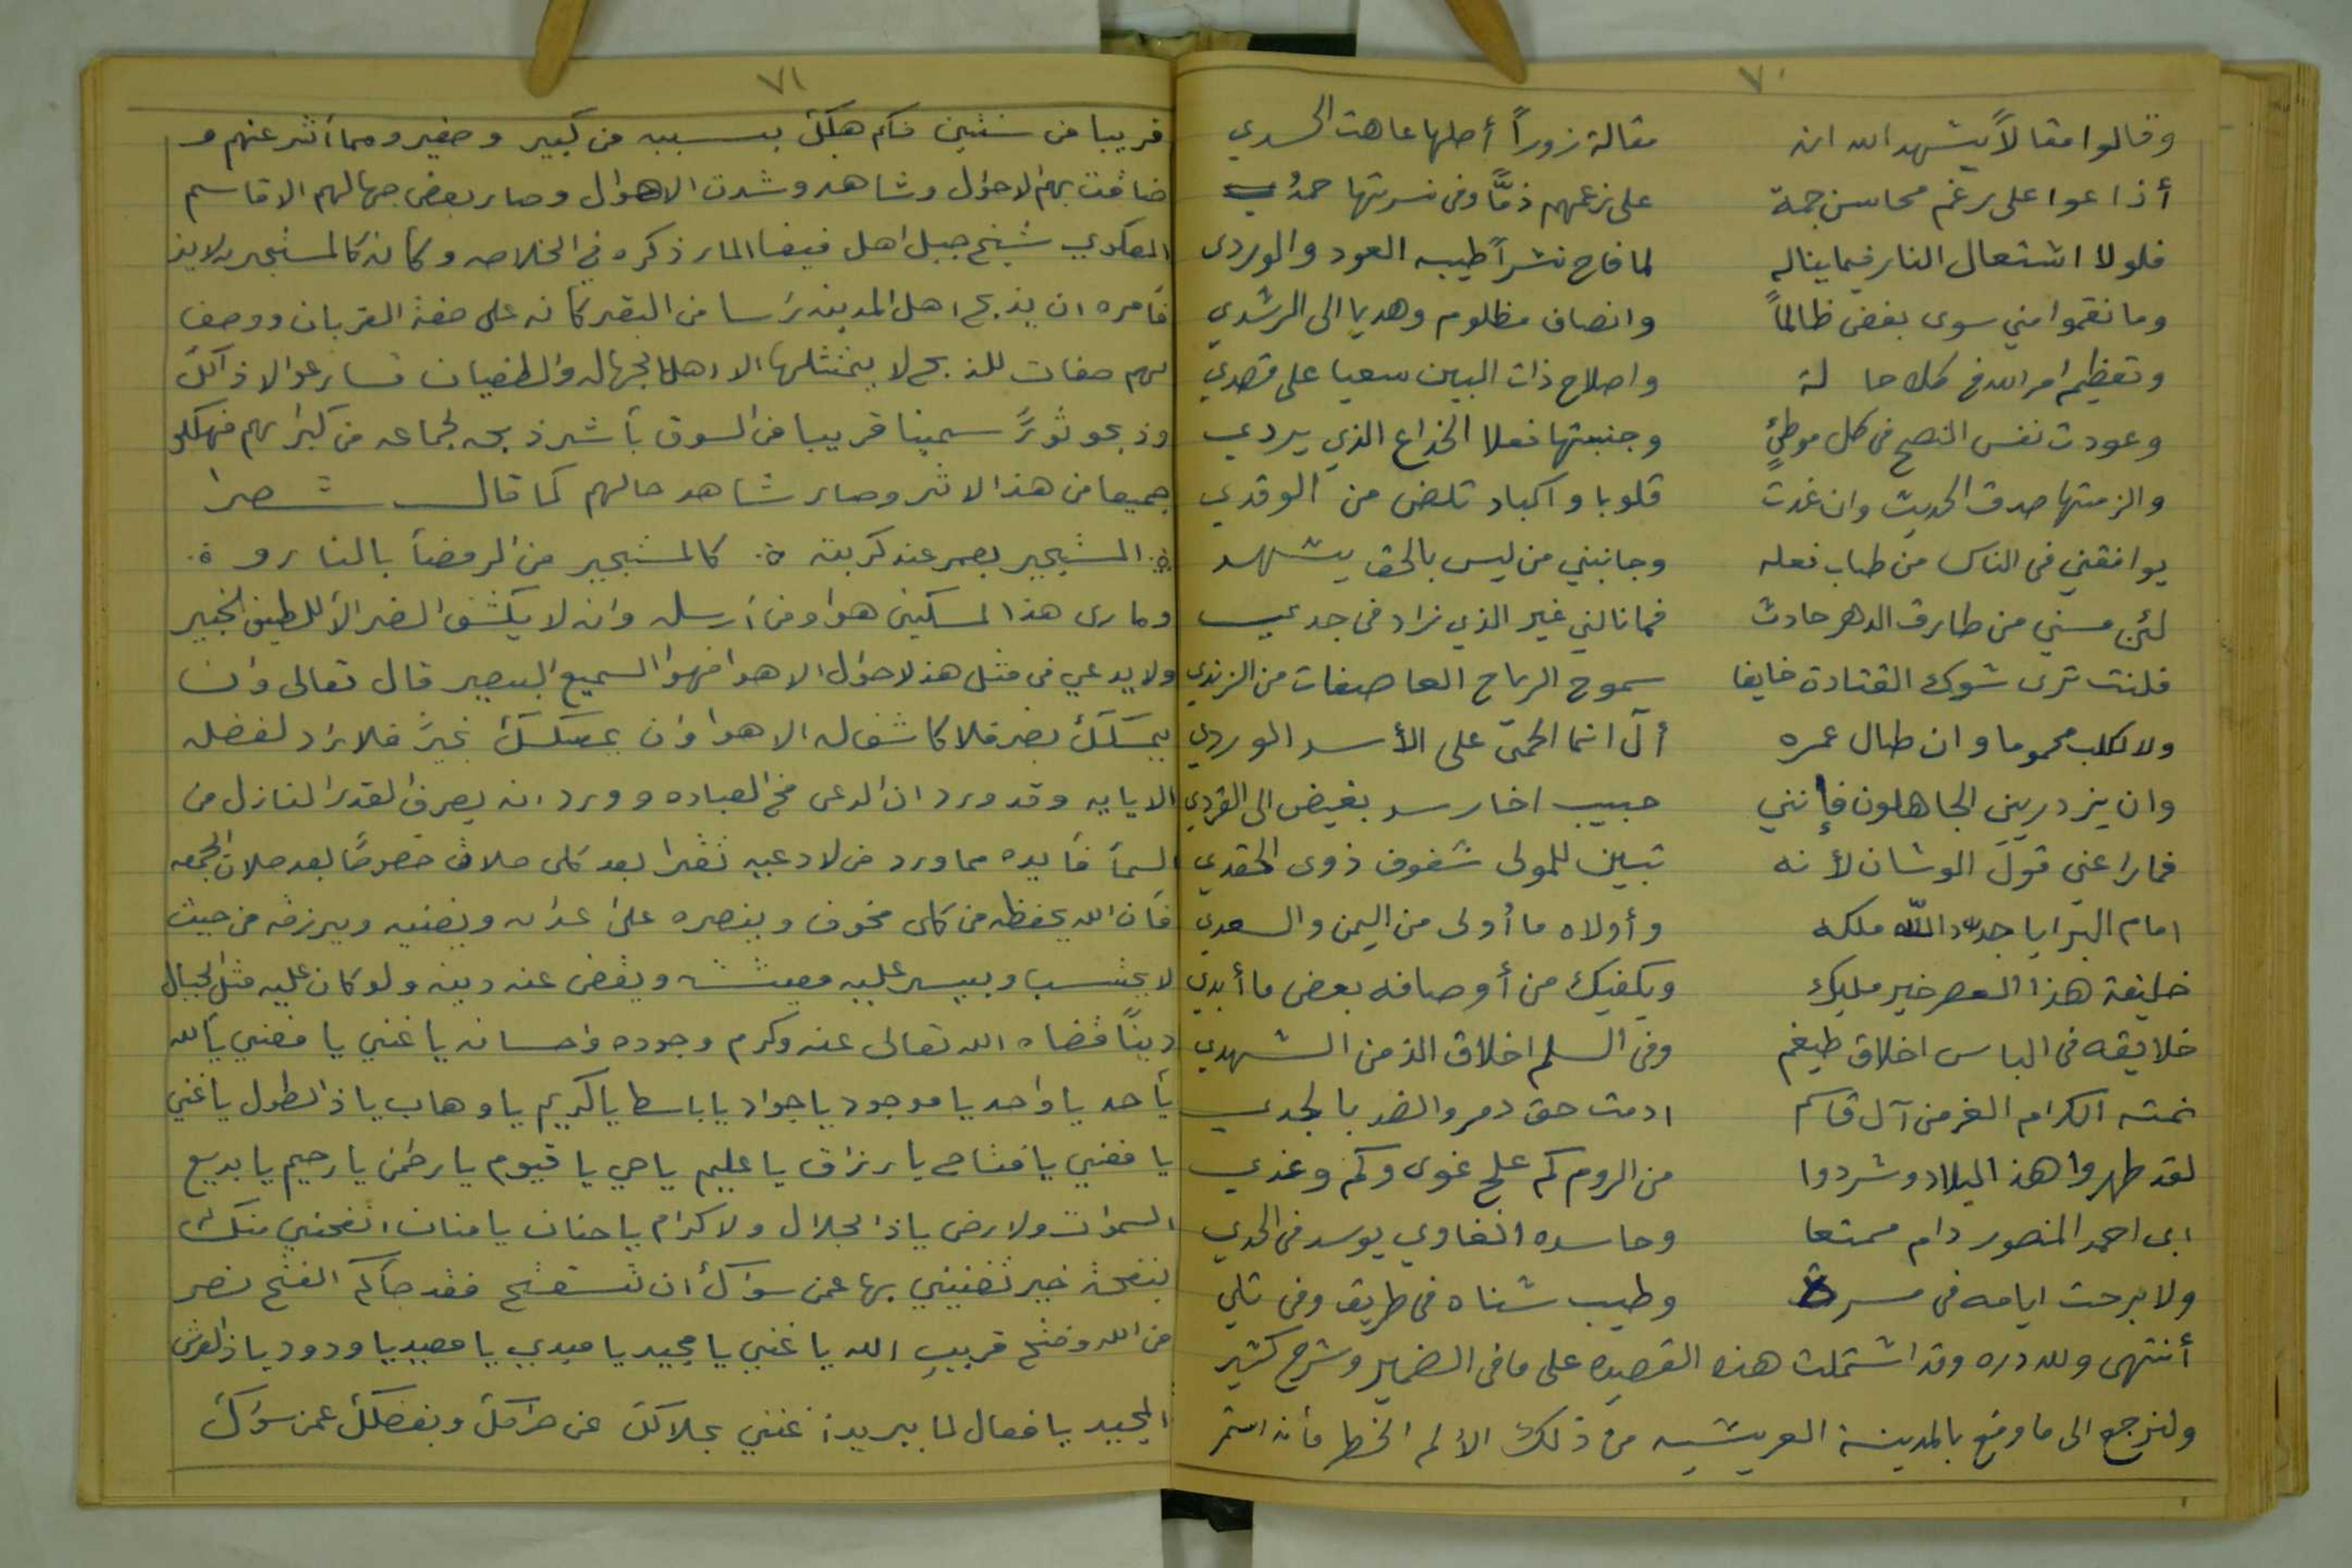 ٧٠
وقالوا مقالاً يشهد الله انه مقالة زوراً أصلها عاهت الحسدي
أذاعوا على رغم محاسن جمة على زعمهم ذمّاً وفى نسرتها حمدي
فلولا اشتعال النار فيما يناله لما فاح نشراً طيبه العود والوردى
وما نقموا مني سوى بغض ظالماً وانصاف مظلوم وهديا الى الرشدي
وتعظيم امر الله فى كل حالة واصلاح ذات البين سعيا على قصدي
وعودت نفس النصح فى كل موطئٍ وجنبتها فعلا الخداع الذي يردي
والزمتها صدق الحديث وان غدت قلوبا واكباد تلضى من الوقدي
يوافقني فى الناس من طاب فعله وجانبني من ليس بالحق يشهد
لئن مسني من طارق الدهر حادث فما نالني غير الذي زاد فى جدي
فلنت ترى شوك القتادة خايفا سموح الرياح العاصفات من الزندي
ولا لكلب محموما وان طال عمره ألا انما الحمى على الأسد الوردي
وان يزدريني الجاهلون فإنني حبيب اخا رسد بغيض الى القردي
فما راعني قول الوشان لأنه تبين للمولى شفوف ذوى الحقدي
امام البرايا جدد الله ملكه وأولاه ما أولى من اليمن والسعدي
خليفة هذا العصر خير مليك ويكفيك من أوصافه بعض ما أبدي
خلايقه فى الباس اخلاق طيغم وفى السلم اخلاق الذ من الشهدي
نمته الكرام الغر من آل قاسم ادمت حق دمر والضد بالجدي
لقد طهروا هذ البلاد وشردوا من الروم كم علج غوى وكم وغدي
ابى احمد المنصور دام ممتعا وحاسده الغاوي يوسد فى الحدي
ولا برحت ايامه فى مسرة وطيب شناه فى طريق وفى تلي
أنتهى ولله دره وقد اشتملت هذه القصيده على مافى الضمير وشرح كثير
ولنرجع الى ما وقع بالمدينة العريشيه من ذلك الألم الخطر فأنه استمر
٧١
قريبا من سنتين فكم هلك بسببه من كبير وصغير ومما أثر عنهم و
ضاقت بهم الاحوال وشاهدو شدت الاهوال وصار بعض جهالهم الا قاسم
المعكوي شيخ جبل اهل فيفا المار ذكره في الخلاصه وكان كالمستجير لايذ
فأمره ان يذبح اهل المدينه رأسا من البقر كأنه على صفة القربان ووصف
لهم صفات للذبح لا يتمثلها الا اهل الجهاله والطغيان فسارعو الا ذالك
وذبحو ثوراً سمينا قريبا من السوق بأشر ذبحه لجماعه من كبرائهم فهلكو
جميعا من هذ الاثر وصار شاهد حالهم كما قال شعرا
المستجير بعمر عند كربته كالمستجير من الرمضأ بالنار
وما رى هذا المسكين هو ومن أرسله وانه لا يكشف الضر الا اللطيف الخبير
ولا يدعي فى مثل هذ لاحوال الا هو فهو السميع البصير قال تعالى وان
يمسك بضر فلا كاشف له الا هو وان يمسك بخير فلا راد لفضله
الايايه وقد ورد ان الدعى مخ العباده وورد انه يصرف القدر النازل من
السمأ فأيده مما ورد من لادعيه تقرا بعد كل صلاة خصوصاً بعد صلات الجمعه
فأن الله يحفظه من كل مخوف وينصره على عداه ويغنيه ويرزقه من حيث
لا يحتسب وييسر عليه معيشته ويقضى عنه دينه ولو كان عليه مثل الجبال
ديناً قضاه الله تعالى عنه وكرم وجوده واحسانه يا غني يا مغني يا الله
يأحد يا واحد يا موجود يا جواد يا باسط يا كريم يا وهاب يا ذالطول يا غني
يا مغني يا فتاح يا رزاق يا عليم يا حي يا قيوم يا رحمن يا رحيم يا بديع
السموات ولارض يا ذالجلال ولاكرام يا حنان يا منان انفحني منك
بنفحة خير تغنيني بها عمن سواك أن تستفتح فقد جأكم الفتح نصر
من الله وفتح قريب الله يا غني يا مجيد يا مبدي يا معيد يا ودود يا ذالعرش
المجيد يا فعال لما يريد أغنني بحلالك عن حرامك وبفضلك عمن سواك